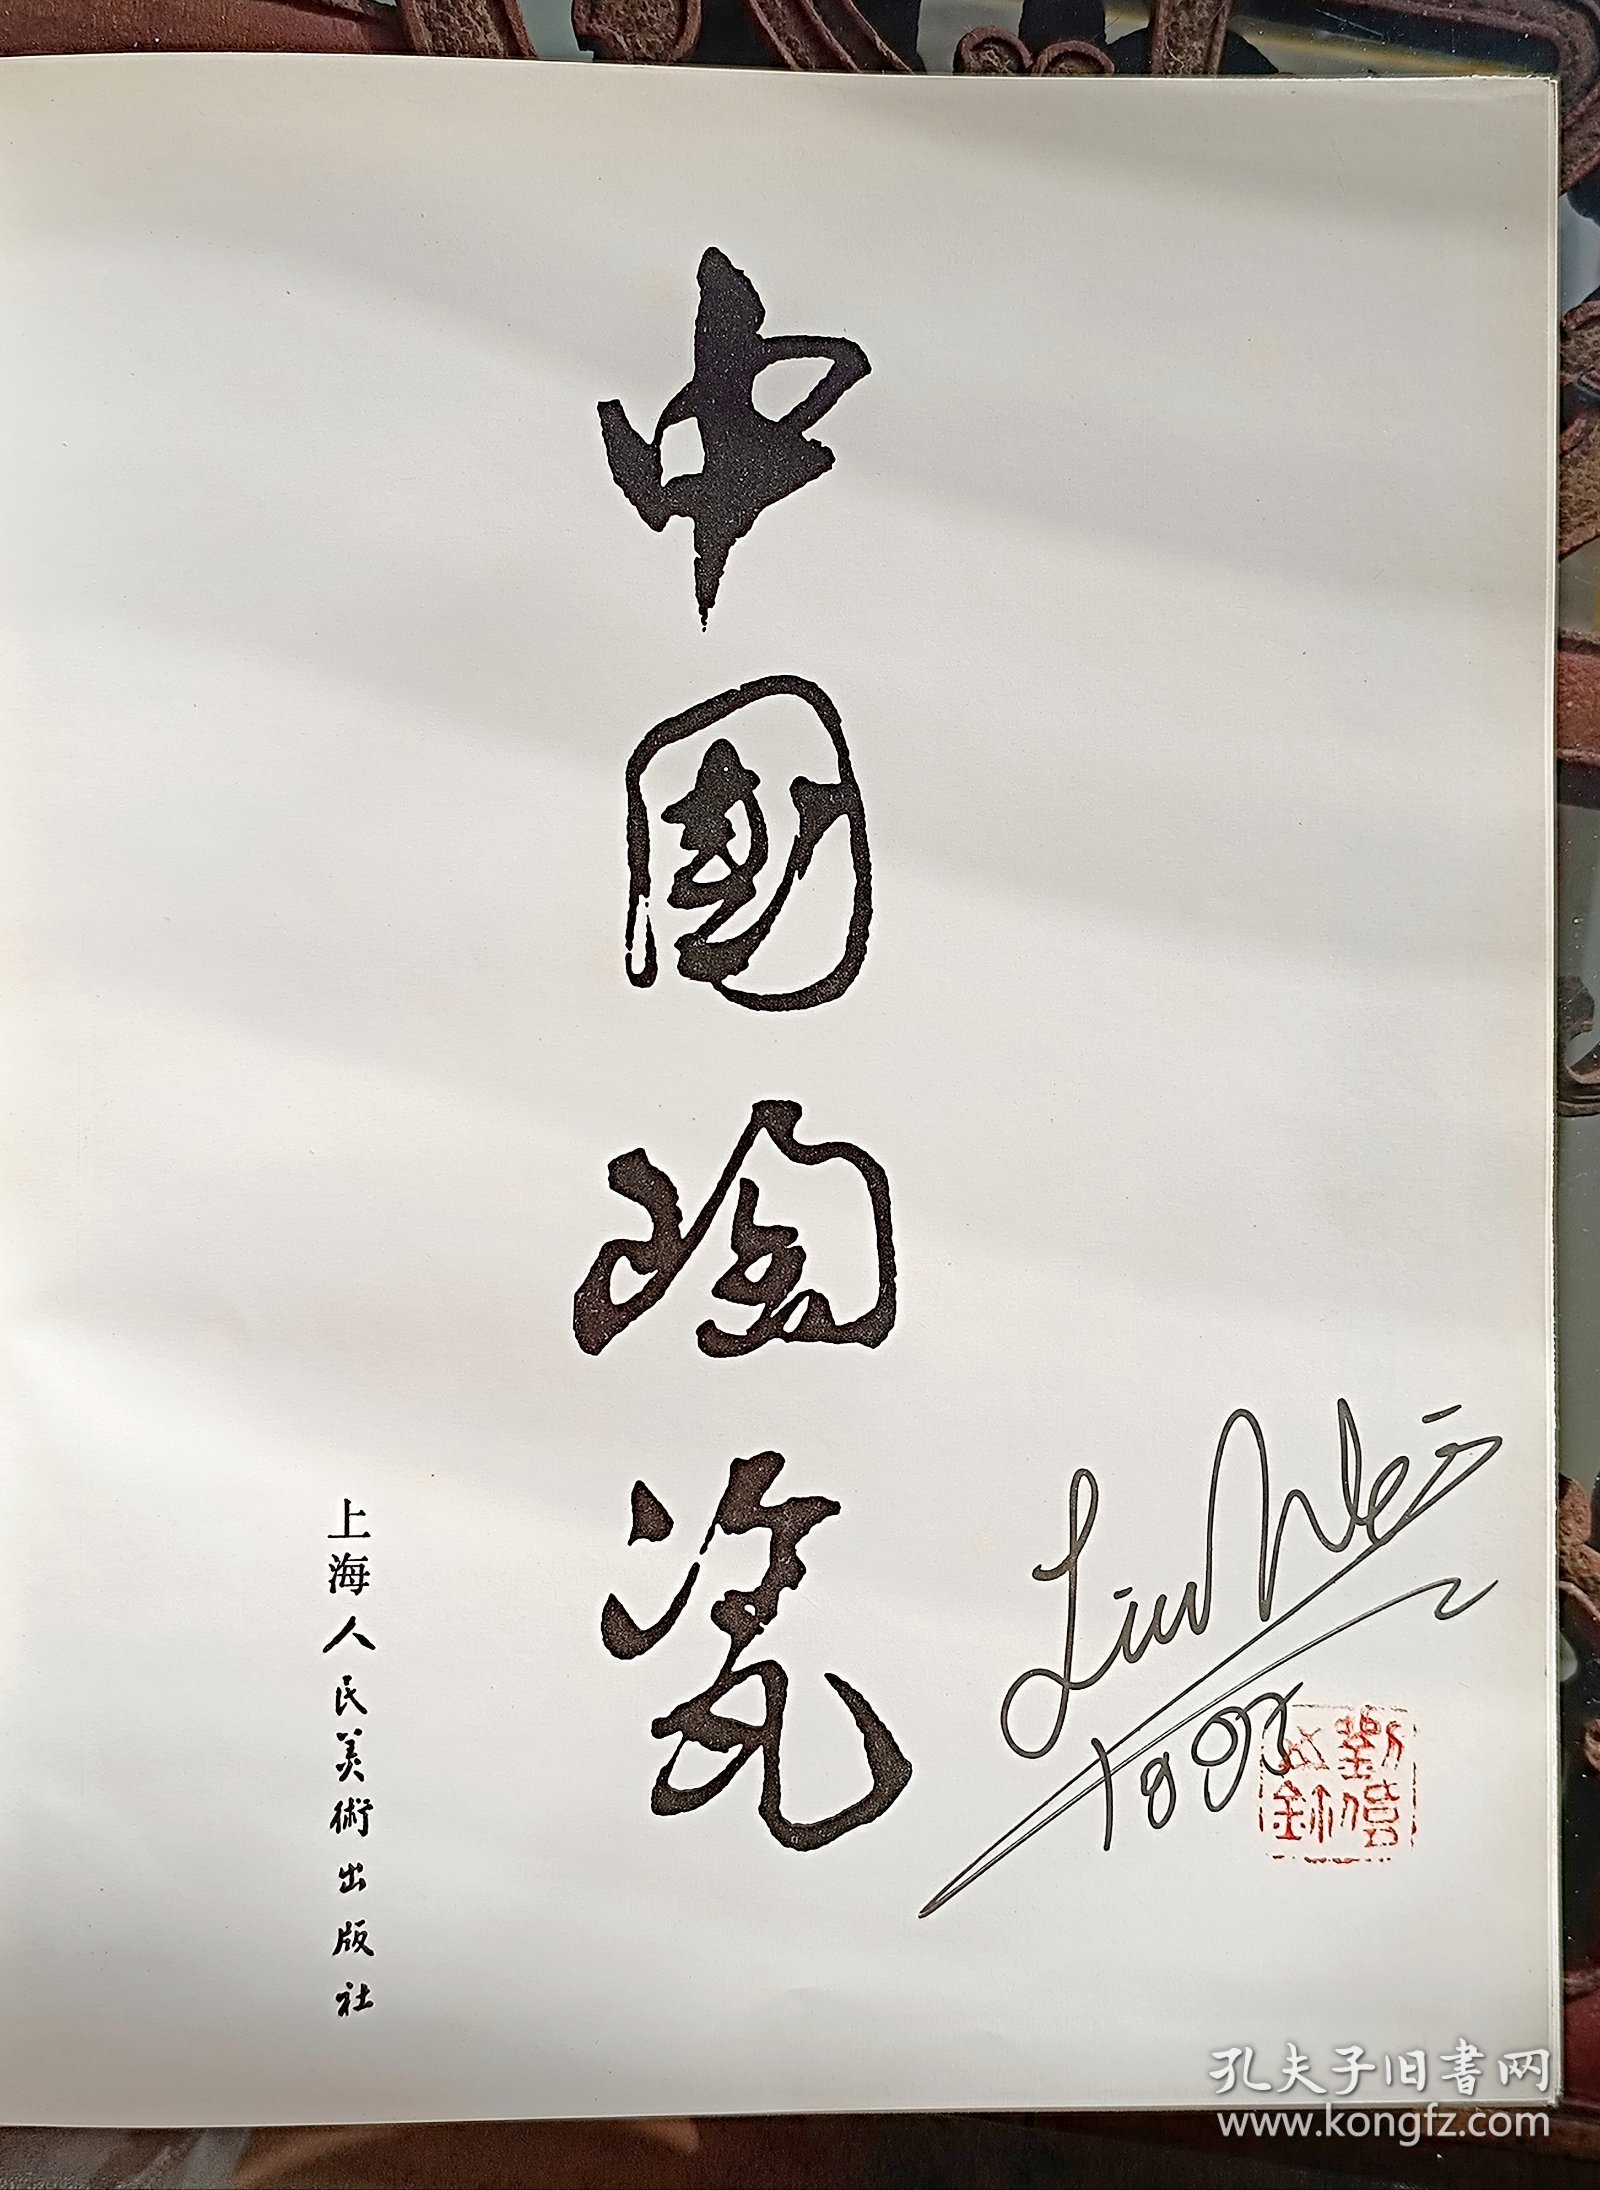 中國陶瓷
上海人民美術出版社
Liu Wei
孔夫子旧书网
www.kongfz.com